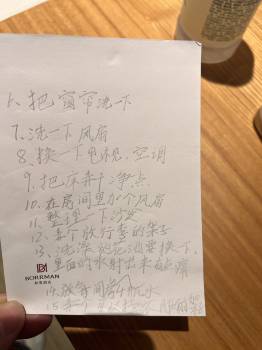 6、把窗帘洗一下
7、洗一下风扇
8、换一下电视,空调
9、把床弄干净点
10、在房间里加个风扇
11、整理一下沙发
12、弄个放行李的架子
13、洗澡的花洒要换下,
里面的水射出来有点痛
BORRMAN
14、放每间
15、弄个